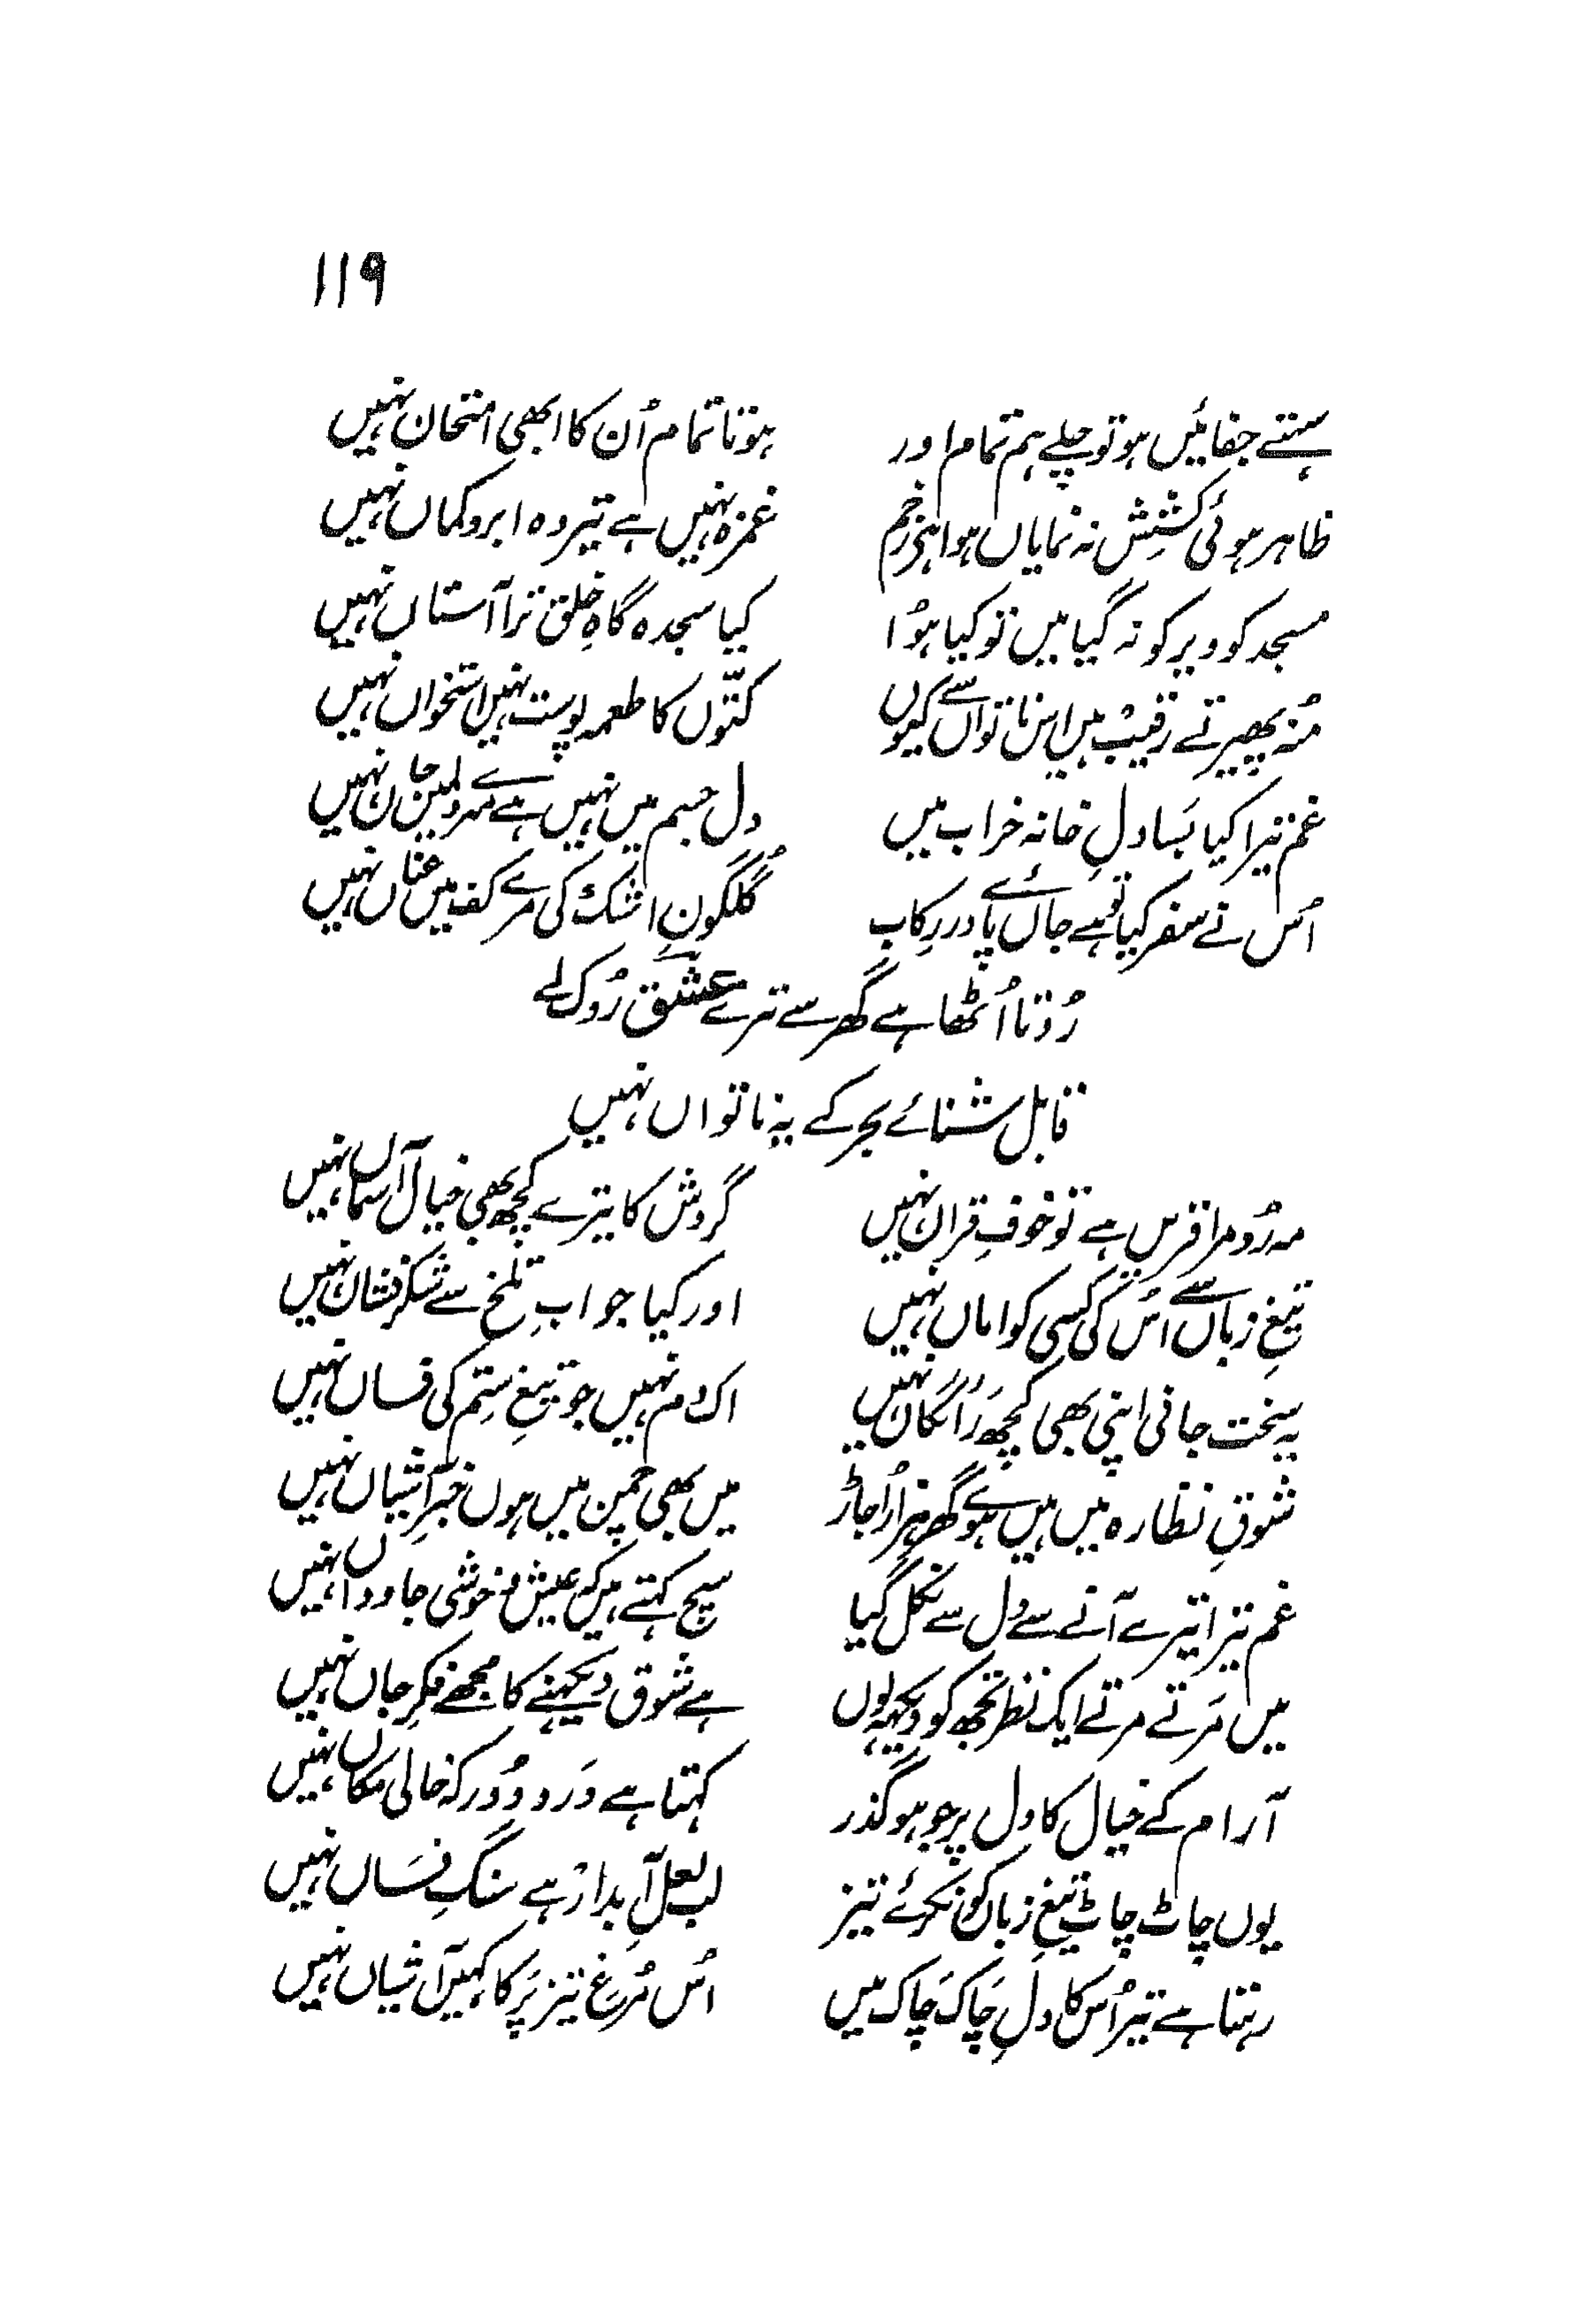 ۱۱۹
سہتے جفائیں ہو تو چلے ہم تمام اور
ہوتا تمام اُن کا ابھی امتحان نہیں
ظاہر ہوئی کشِش نہ نمایاں ہوا ہی زخم
غمزہ نہیں ہے تیر وہ ابرو کماں نہیں
مسجد کو دیر کو نہ گیا میں تو کیا ہوُا
کیا سجدہ گاہِ خلق ترا آستاں نہیں
مُنہ پھیرتے رقیب ہیں اس ناتواں سے کیوں
کتّوں کا طعمہ پوست نہیں استخواں نہیں
غم تیرا کیا بَسا دلِ خانہ خراب میں
دل جسم میں نہیں ہے مرے دل میں جاں نہیں
اُس نے سفر کیا تو ہے جاں پائے در رکاب
گُلگونِ اشک کی مرے کف میں عناں نہیں
رُوتا اُٹھا ہے گھر سے ترے عشق رُوک لے
قابل شنائے بحر کے یہ ناتواں نہیں
مہ رُو مرا قریں ہے تو خوفِ قراں نہیں
گردش کا تیرے کچھ بھی خیال آسماں نہیں
تیغِ زباں سے اُس کی کسی کو اماں نہیں
اور کیا جوابِ تلخ سے شکر فشاں نہیں
یہ سخت جانی اپنی بھی کچھ رَائگاں نہیں
اک دم نہیں جو تیغِ سِتم کی فساں نہیں
شوقِ نظارہ میں ہیں ہوئے گھر ہزار اُجاڑ
میں بھی چمن میں ہوں خبرِ آشیاں نہیں
غم تیرا تیرے آنے سے دل سے نکل گیا
سچ کہتے ہیں کہ عیش و خوشی جاوداں نہیں
میں مَرتے مرتے ایک نظر تجھ کو دیکھ لوں
ہے شوق دیکھنے کا مجھے فکرِ جاں نہیں
آرام کے خیال کا دل پر جو ہو گذر
کہتا ہے دَرد دُور کہ خالی مکاں نہیں
یوں چاٹ چاٹ تیغِ زباں کو نہ کرئے تیز
لب لعلِ آبدار ہے سنگِ فَساں نہیں
رہتا ہے تیر اُس کا دلِ چَاک چَاک میں
اُس مُرغِ تیز پَر کا کہیں آشیاں نہیں